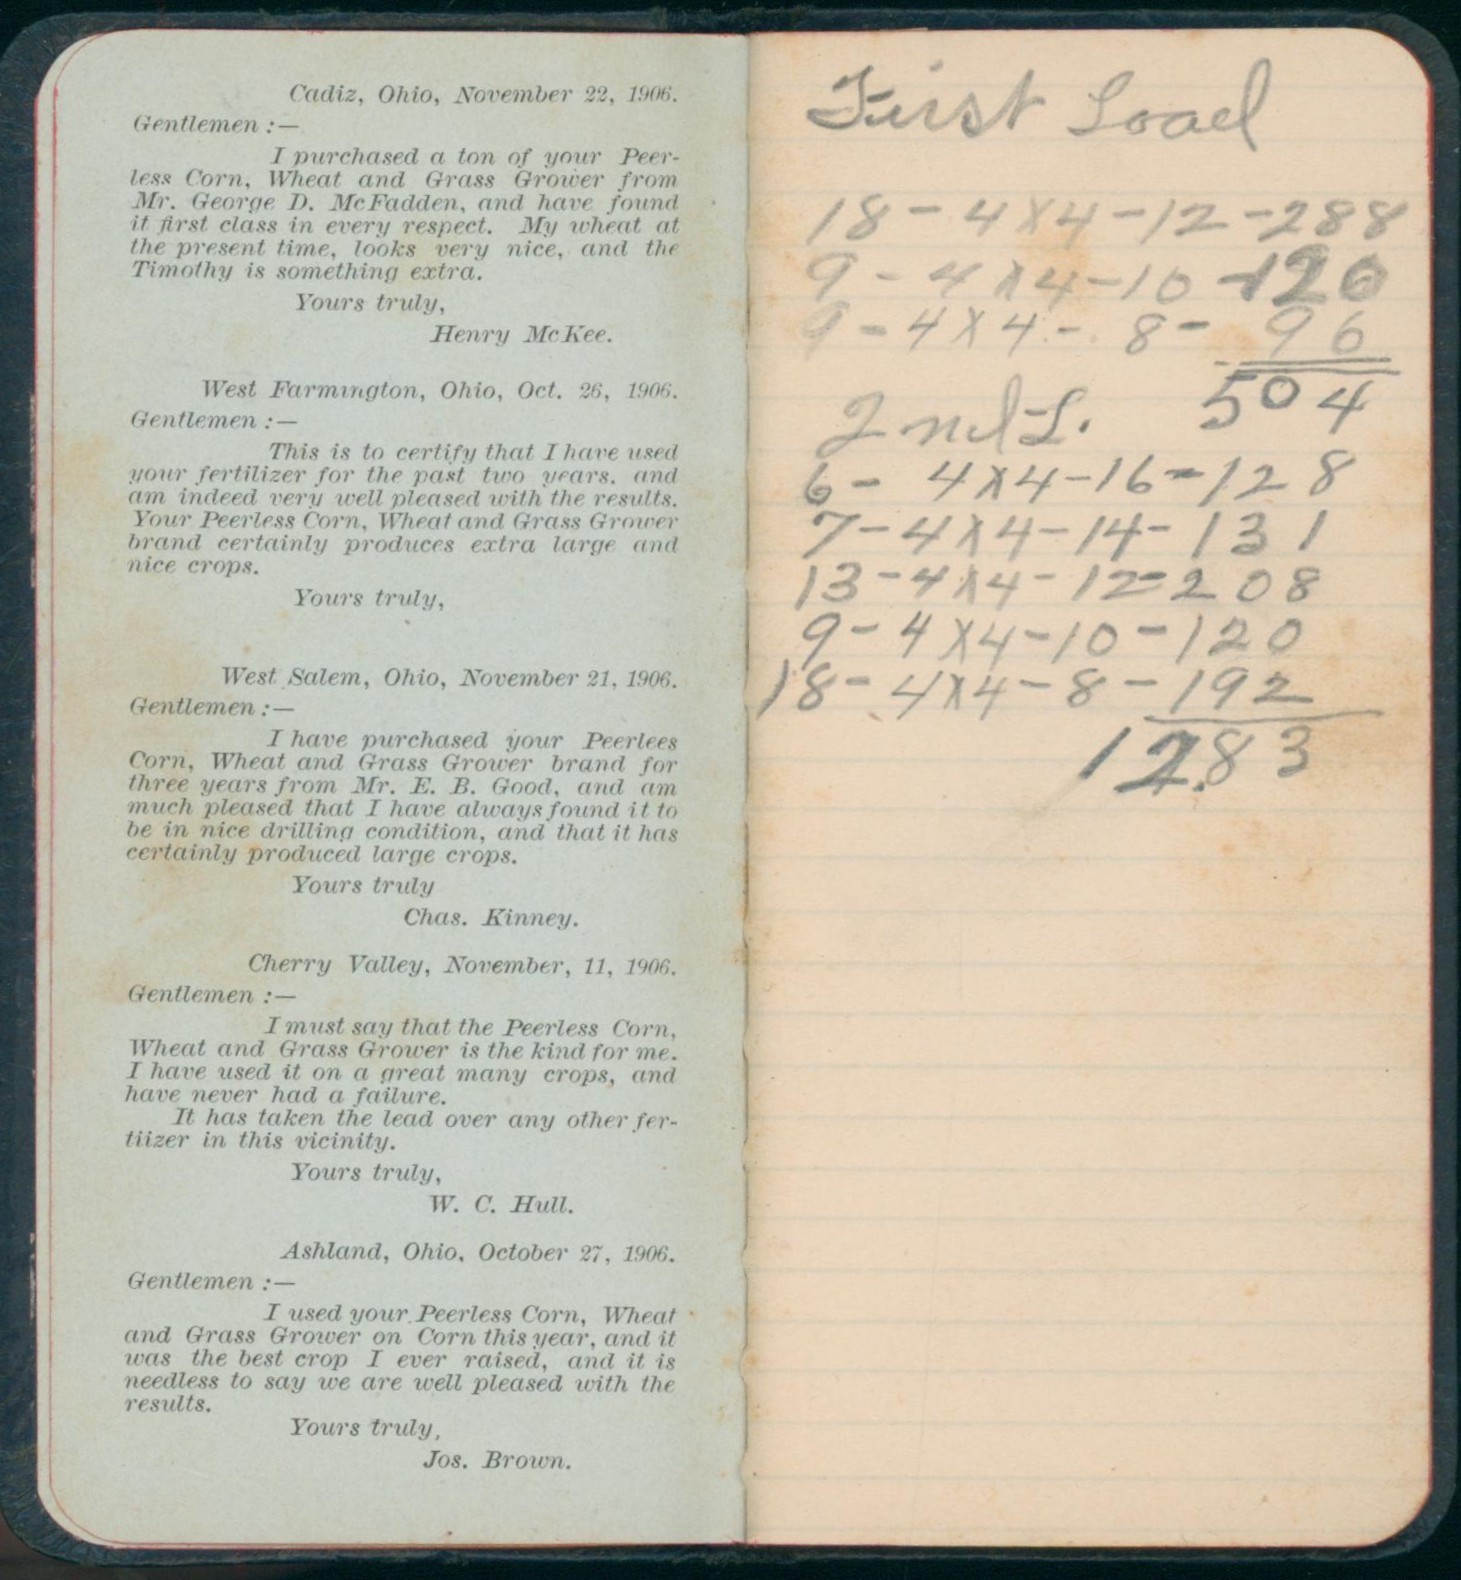 Cadiz, Ohio, November 22, 1906.
Gentlemen :—
I purchased a ton of your Peer-
less Corn, Wheat and Grass Grower from
Mr. George D. McFadden, and have found
it first class in every respect. My wheat at
the present time, looks very nice, and the
Timothy is something extra.
Yours truly,
Henry McKee.
West Farmington, Ohio, Oct. 26, 1906.
Gentlemen :—
This is to certify that I have used
your fertilizer for the past two years, and
am indeed very well pleased with the results.
Your Peerless Corn, Wheat and Grass Grower
brand certainly produces extra large and
nice crops.
Yours truly,
West Salem, Ohio, November 21, 1906.
Gentlemen :—
I have purchased your Peerlees
Corn, Wheat and Grass Grower brand for
three years from Mr. E. B. Good, and am
much pleased that I have always found it to
be in nice drilling condition, and that it has
certainly produced large crops.
Yours truly
Chas. Kinney.
Cherry Valley, November, 11, 1906.
Gentlemen :—
I must say that the Peerless Corn,
Wheat and Grass Grower is the kind for me.
I have used it on a great many crops, and
have never had a failure.
It has taken the lead over any other fer-
tiizer in this vicinity.
Yours truly,
W. C. Hull.
Ashland, Ohio, October 27, 1906.
Gentlemen :—
I used your Peerless Corn, Wheat
and Grass Grower on Corn this year, and it
was the best crop I ever raised, and it is
needless to say we are well pleased with the
results.
Yours truly,
Jos. Brown.
First Load
18 - 4 X 4 - 12 - 288
9 - 4 X 4 - 10 - 120
9 - 4 X 4 - 8 - 96
504
2nd L.
6 - 4 X 4 - 16 = 128
7 - 4 X 4 - 14 - 131
13 - 4 X 4 - 12 = 208
9 - 4 X 4 - 10 - 120
18 - 4 X 4 - 8 - 192
1283